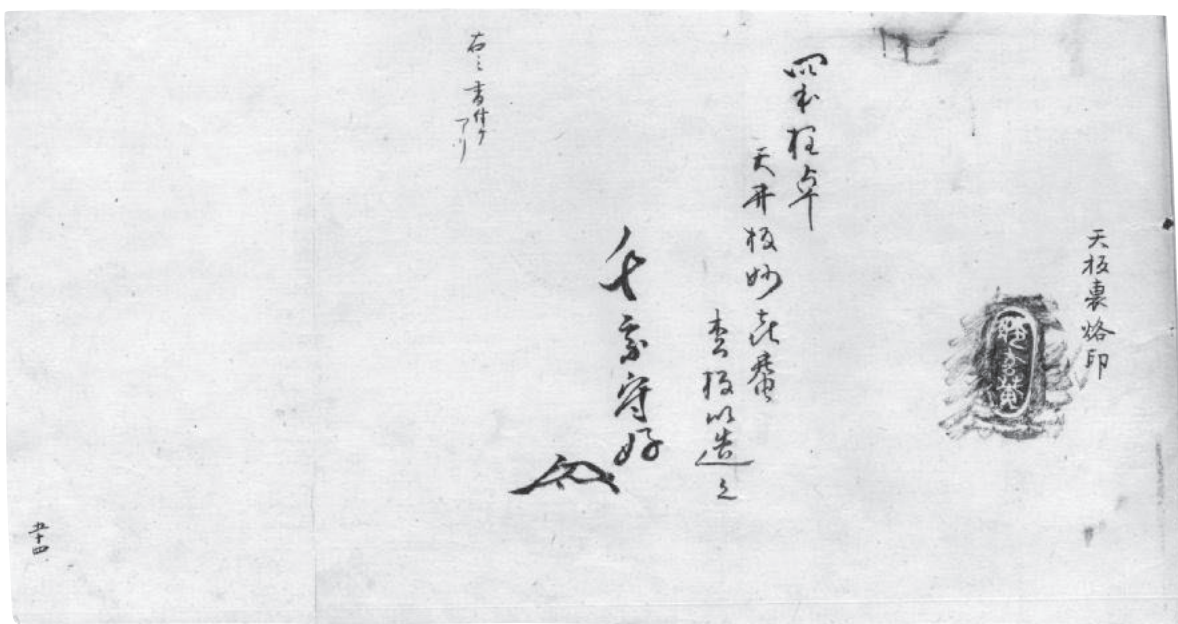 天板裏烙印
四本柱卓
天井板妙喜菴
板以造之
千宗守好
右書付ケアリ
五十四